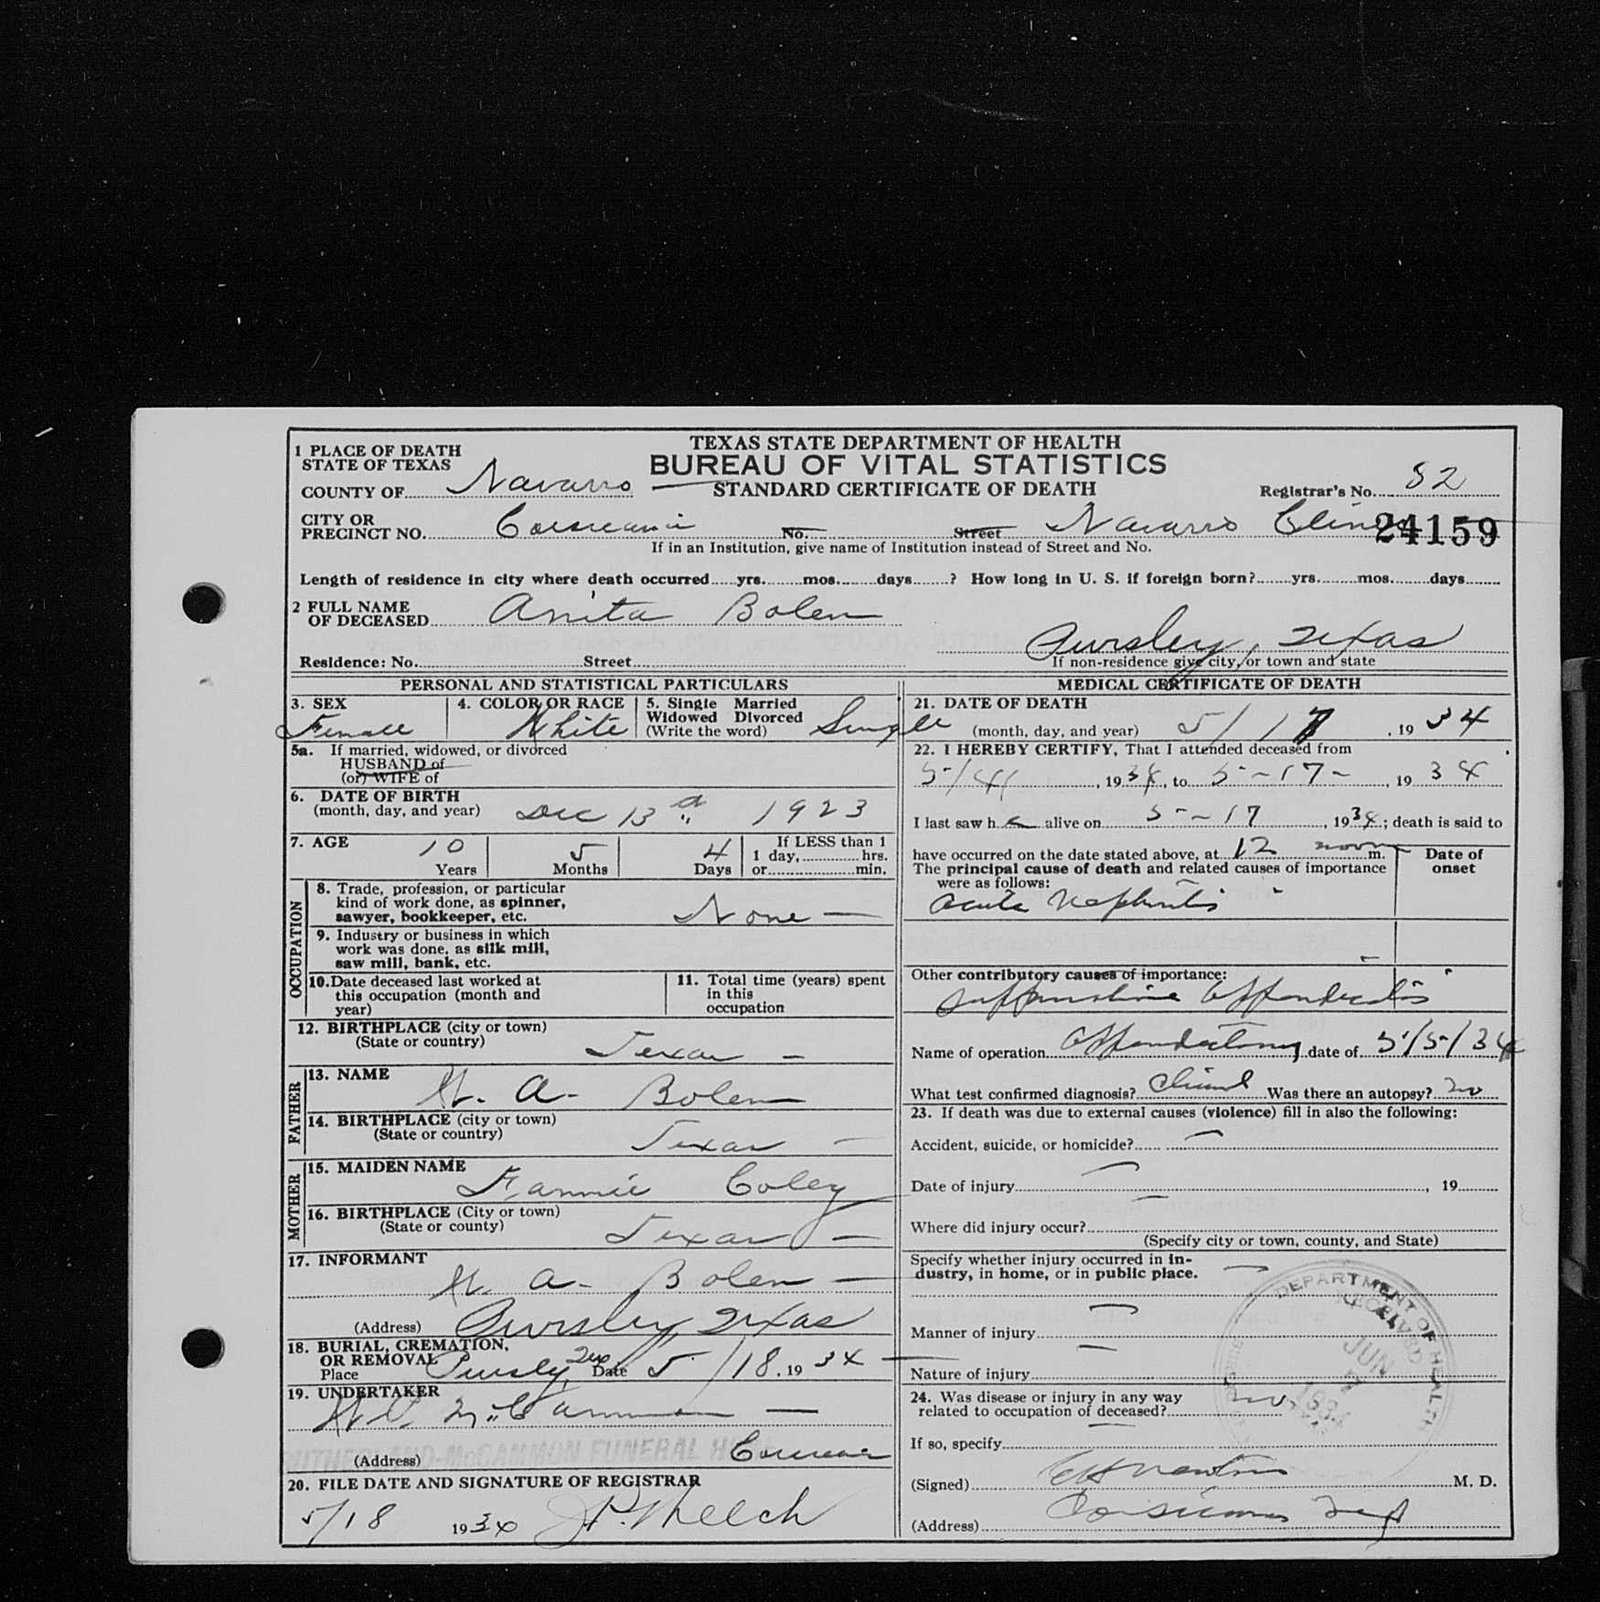 TEXAS STATE DEPARTMENT OF HEALTH
BUREAU OF VITAL STATISTICS
STANDARD CERTIFICATE OF DEATH
1 PLACE OF DEATH
STATE OF TEXAS
COUNTY OF Navarro
Registrar's No. 82
CITY OR
PRECINCT NO. Corsicana No. Street Navarro Clinic 24159
If in an Institution, give name of Institution instead of Street and No.
Length of residence in city where death occurred yrs. mos. days ? How long in U. S. if foreign born? yrs. mos. days
2 FULL NAME
OF DECEASED Anita Bolen
Pursley, Texas
Residence: No. Street If non-residence give city, or town and state
PERSONAL AND STATISTICAL PARTICULARS
3. SEX Female
4. COLOR OR RACE White
5. Single Married
Widowed Divorced
(Write the word) Single
5a. If married, widowed, or divorced
HUSBAND of
(or) WIFE of
6. DATE OF BIRTH
(month, day, and year) Dec 13 1923
7. AGE 10 Years 5 Months 4 Days
If LESS than 1
1 day, hrs.
or min.
OCCUPATION
8. Trade, profession, or particular
kind of work done, as spinner,
sawyer, bookkeeper, etc. None
9. Industry or business in which
work was done, as silk mill,
saw mill, bank, etc.
10. Date deceased last worked at
this occupation (month and
year)
11. Total time (years) spent
in this
occupation
12. BIRTHPLACE (city or town)
(State or country) Texas
FATHER
13. NAME A. Bolen
14. BIRTHPLACE (city or town)
(State or country) Texas
MOTHER
15. MAIDEN NAME Fannie Coley
16. BIRTHPLACE (City or town)
(State or county) Texas
17. INFORMANT A. Bolen
(Address) Pursley, Texas
18. BURIAL, CREMATION,
OR REMOVAL
Place Pursley, Tex Date 5/18 . 19 34
19. UNDERTAKER McCammon
SUTHERLAND-McCAMMON FUNERAL HO
(Address) Corsicana
20. FILE DATE AND SIGNATURE OF REGISTRAR
5/18 1934 Welch
MEDICAL CERTIFICATE OF DEATH
21. DATE OF DEATH
(month, day, and year) 5/17 , 19 34
22. I HEREBY CERTIFY, That I attended deceased from
5/4 , 1934, to 5-17- , 19 34
I last saw h alive on 5-17 , 1934; death is said to
have occurred on the date stated above, at 12 noon m.
The principal cause of death and related causes of importance
were as follows:
Date of
onset
Acute Nephritis
Other contributory causes of importance:
Suppurative Appendicitis
Name of operation Appendectomy date of 5/5/34
What test confirmed diagnosis? Clinical Was there an autopsy? no
23. If death was due to external causes (violence) fill in also the following:
Accident, suicide, or homicide?
Date of injury , 19
Where did injury occur?
(Specify city or town, county, and State)
Specify whether injury occurred in in-
dustry, in home, or in public place.
Manner of injury
Nature of injury
24. Was disease or injury in any way
related to occupation of deceased? no
If so, specify
(Signed) Newton M. D.
(Address) Corsicana Tex
DEPARTMENT OF HEALTH
RECEIVED
JUN
1934